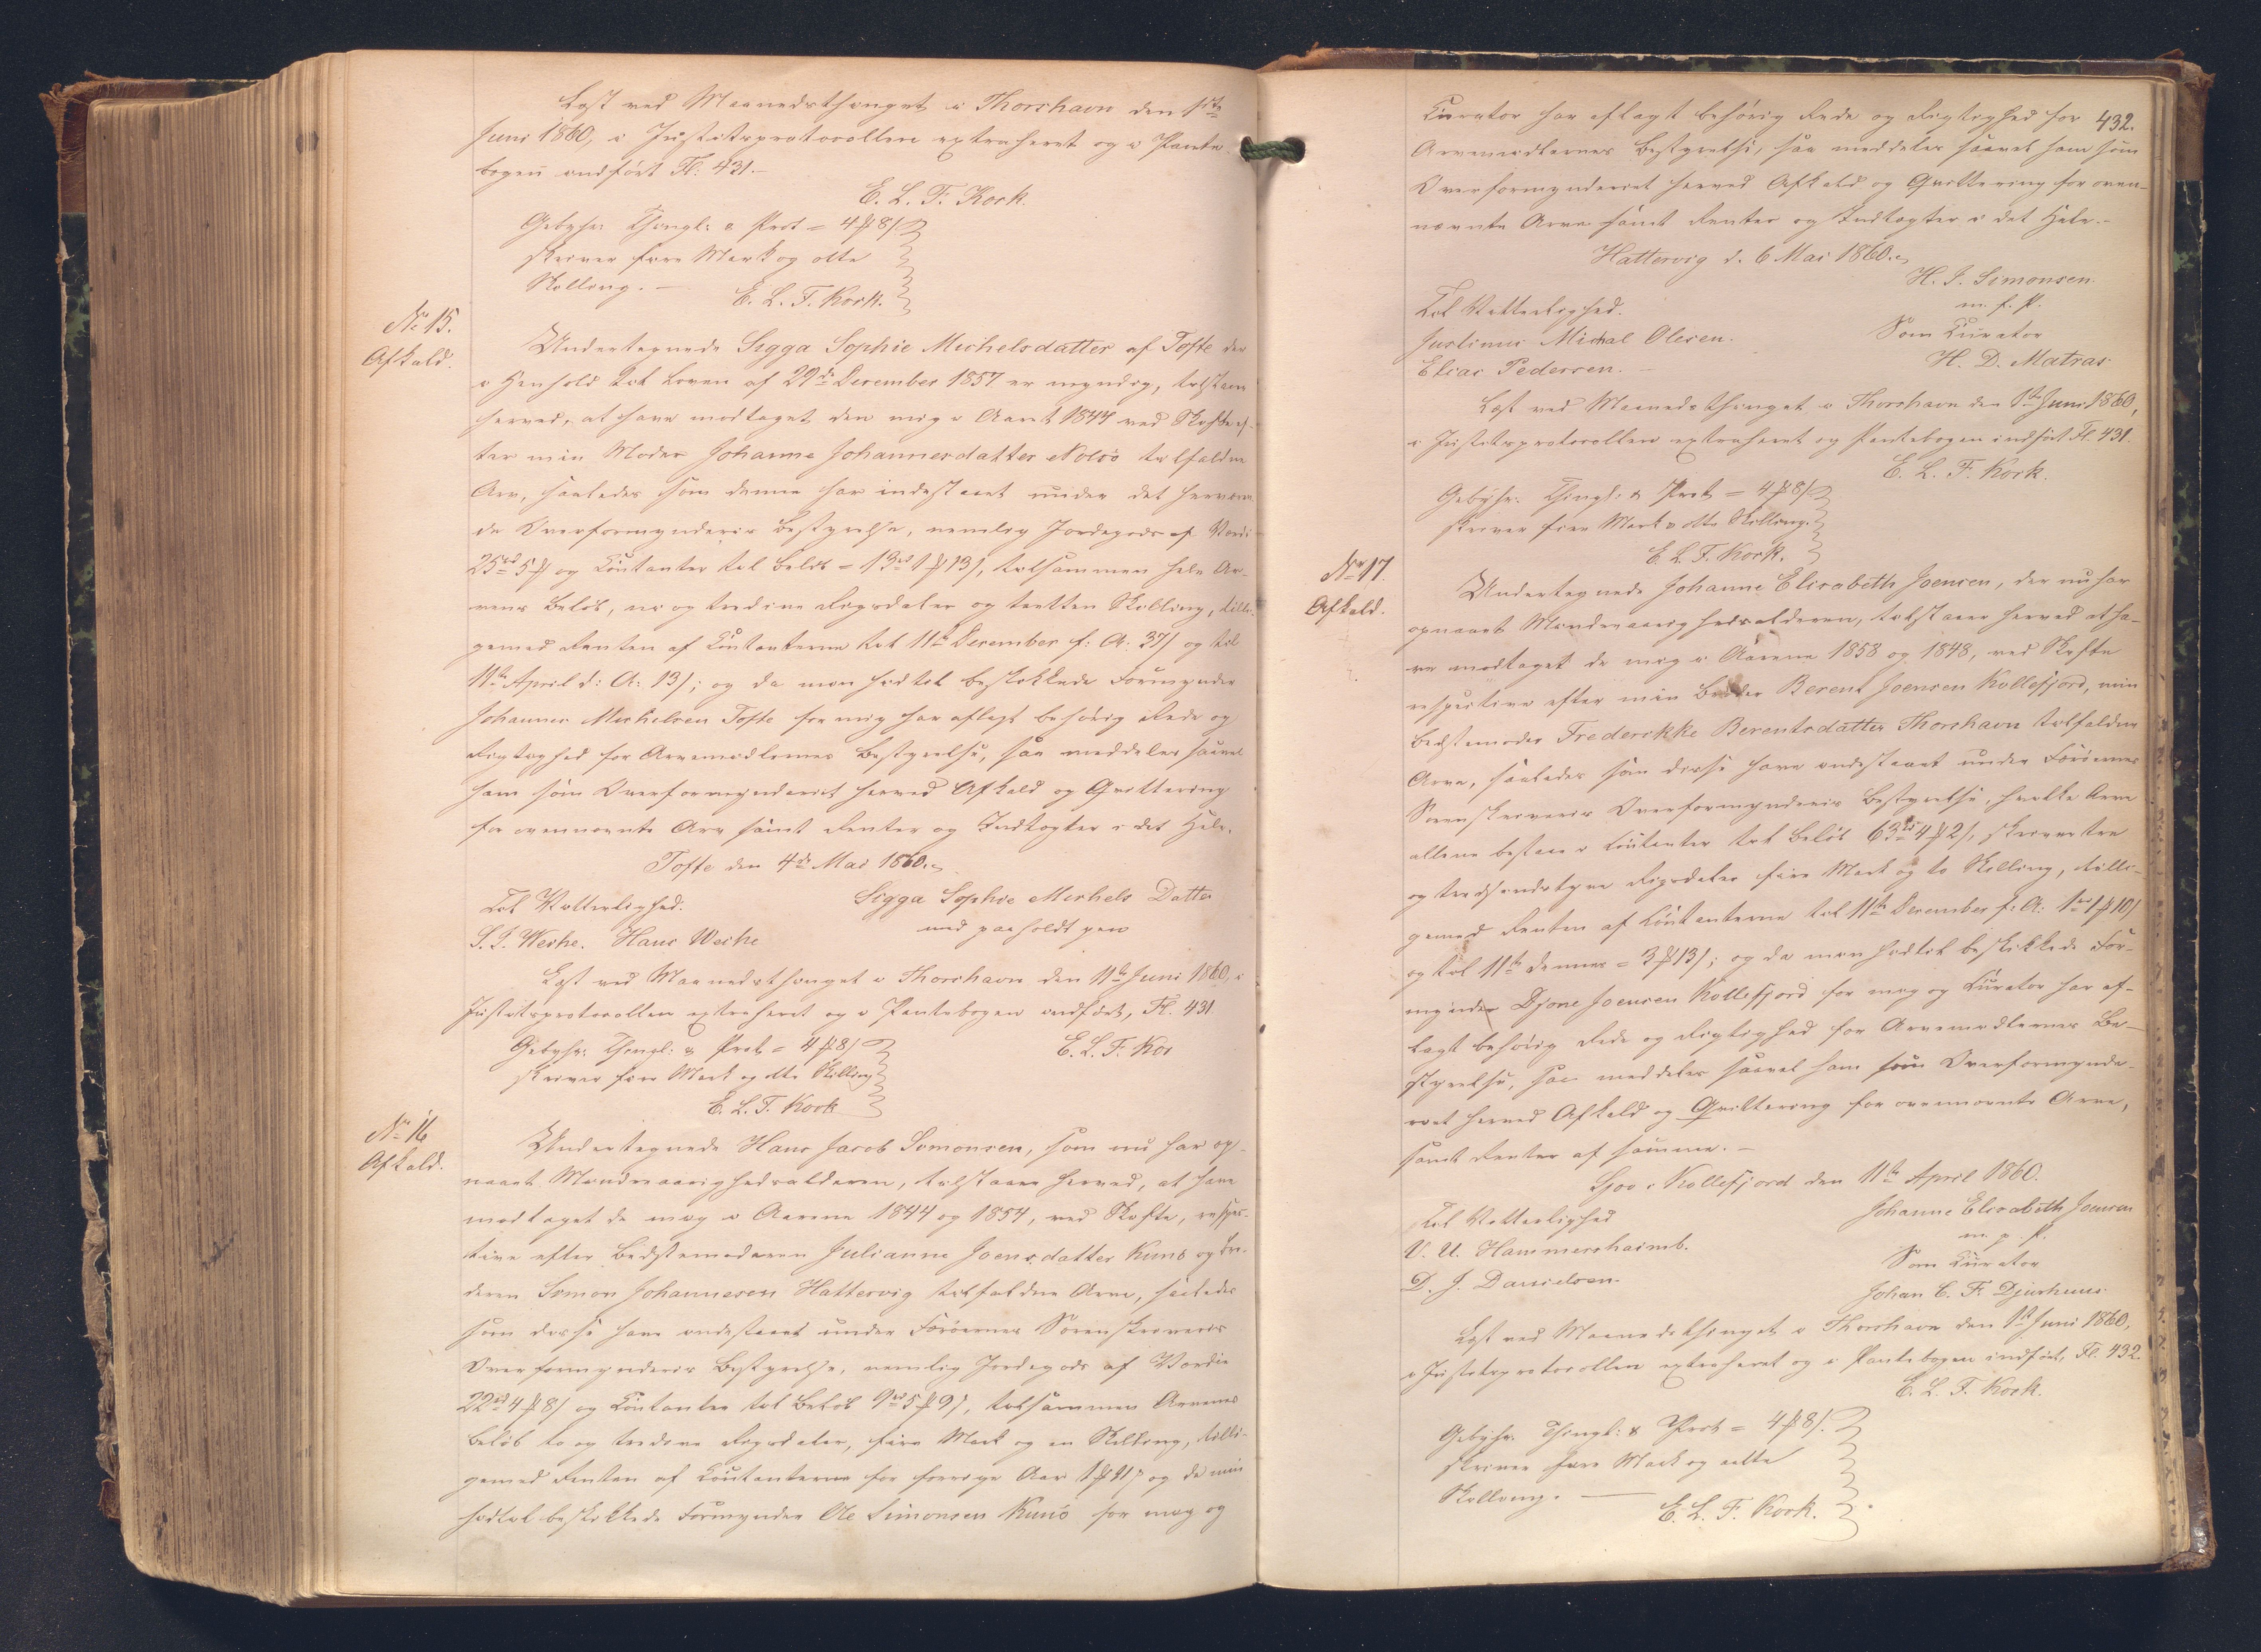 Læst ved Maanedsthinget i Thorshavn den 1ste
Juni 1860, i Justitsprotocollen extraheret og i Pante-
bogen indført Fl. 431.-
E. L. T. Kock.
Gebyhr: Thingl: & Prot = 4 ₻ 8 /
skriver fire Mark og otte
Skilling. -
E. L. T. Kock.
No 15.
Afkald.
Undertegnede Sigga Sophie Michelsdatter af Tofte der
i Henhold til Loven af 29de December 1857 er myndig, tilstaaer
herved, at have modtaget den mig i Aaret 1844 ved Skifte ef-
ter min Moder Johanne Johannesdatter Nolsø tilfaldne
Arv, saaledes som denne har indestaaet under det herværen-
de Overformynderies Bestyrelse, nemlig Jordegods af Værdi
25rd 5 ₻ og Contanter til Beløb = 13rd 1 ₻ 13 /, tilsammen hele Ar-
vens Beløb, ni og tredive Rigsdaler og tretten Skilling, tilli-
gemed Renten af Contanterne til 11te December f: A: 37 / og til
11te April d: A: 13 /; og da min hidtil beskikkede Formynder
Johannes Michelsen Tofte for mig har aflagt behørig Rede og
Rigtighed for Arvemidlernes Bestyrelse, saa meddeles saavel
ham som Overformynderiet herved Afkald og Qvittering
for ovennævnte Arv samt Renter og Indtægter i det Hele.
Tofte den 4de Mai 1860.
Til Vitterlighed. Sigga Sophie Michels Datter
S. J. Weihe. Hans Weihe med paaholdt pen
Læst ved Maanedsthinget i Thorshavn den 11te Juni 1860, i
Justitsprotocollen extraheret og i Pantebogen indført, Fl. 431.
Gebyhr: Thingl: & Prot = 4 ₻ 8 / E. L. T. Koc
skriver fire Mark og otte Skilling
E. L. T. Kock
No 16
Afkald.
Undertegnede Hans Jacob Simonsen, som nu har op-
naaet Mindreaarighedsalderen, tilstaaer herved, at have
modtaget de mig i Aarene 1844 og 1854, ved Skifte, respec-
tive efter Bedstemoderen Julianne Joensdatter Kunø og Fa-
deren Simon Johannesen Hattervig tilfaldne Arve, saaledes
som disse have indestaaet under Færøernes Sorenskriveries
Overformynderies Bestyrelse, nemlig Jordegods af Værdie
22rd 4 ₻ 8 / og Contanter til Beløb 9rd 5 ₻ 9 /, tilsammen Arvenes
Beløb to og tredive Rigsdaler, fire Mark og en Skilling, tilli-
gemed Renten af Contanterne for forrige Aar 1 ₻ 11 / og da min
hidtil beskikkede Formynder Ole Simonsen Kunø for mig og
432.
Curator har aflagt behørig Rede og Rigtighed for
Arvemidlernes Bestyrelse, saa meddeles saavel ham som
Overformynderiet herved Afkald og Qvittering for oven-
nævnte Arve samt Renter og Indtægter i det Hele.-
Hattervig d. 6 Mai 1860.
H. J. Simonsen.
m. f. P.
Til Vitterlighed. Som Curator
Justinus Michal Olesen. H. D. Matras
Elias Pedersen. -
Læst ved Maanedsthinget i Thorshavn den 1ste Juni 1860,
i Justitsprotocollen extraheret og Pantebogen indført Fl. 431.
E. L. T. Kock.
Gebyhr: Thingl: & Prot = 4 ₻ 8 /
skriver fire Mark & otte Skilling.
E. L. T. Kock.
No 17.
Afkald.
Undertegnede Johanne Elisabeth Joensen, der nu har
opnaaet Mindreaarighedsalderen, tilstaaer herved at ha-
ve modtaget de mig i Aarene 1853 og 1848, ved Skifte
respective efter min Broder Berent Joensen Kollefjord, min
Bedstemoder Frederikke Berentsdatter Thorshavn tilfaldne
Arve, saaledes som disse have indestaaet under Færøernes
Sorenskriveries Overformynderies Bestyrelse, hvilke Arve
allene bestaae i Contanter til Beløb 63rd 4 ₻ 2 /, skriver tre
og tredsindstyve Rigsdaler fire Mark og to Skilling, tilli-
gemed Renten af Contanterne til 11te December f: A: 1rd 1 ₻ 10 /
og til 11te dennes = 3 ₻ 13 /; og da min hidtil beskikkede For-
mynder Djone Joensen Kollefjord for mig og Curator har af-
lagt behørig Rede og Rigtighed for Arvemidlernes Be-
styrelse, saa meddeles saavel ham som Overformynde-
riet herved Afkald og Qvittering for ovennævnte Arve,
samt Renter af samme. -
Sjov i Kollefjord den 11te April 1860.
Til Vitterlighed Johanne Elisabeth Joensen
V. U. Hammershaimb. m. p. P.
D. J. Danielsen. Som Curator
Johan C. F. Djurhuus.
Læst ved Maanedsthinget i Thorshavn den 1ste Juni 1860,
i Justitsprotocollen extraheret og i Pantebogen indført, Fl. 432.
E. L. T. Kock.
Gebyhr. Thingl: & Prot = 4 ₻ 8 /.
skriver fire Mark og otte
Skilling. -
E. L. T. Kock.